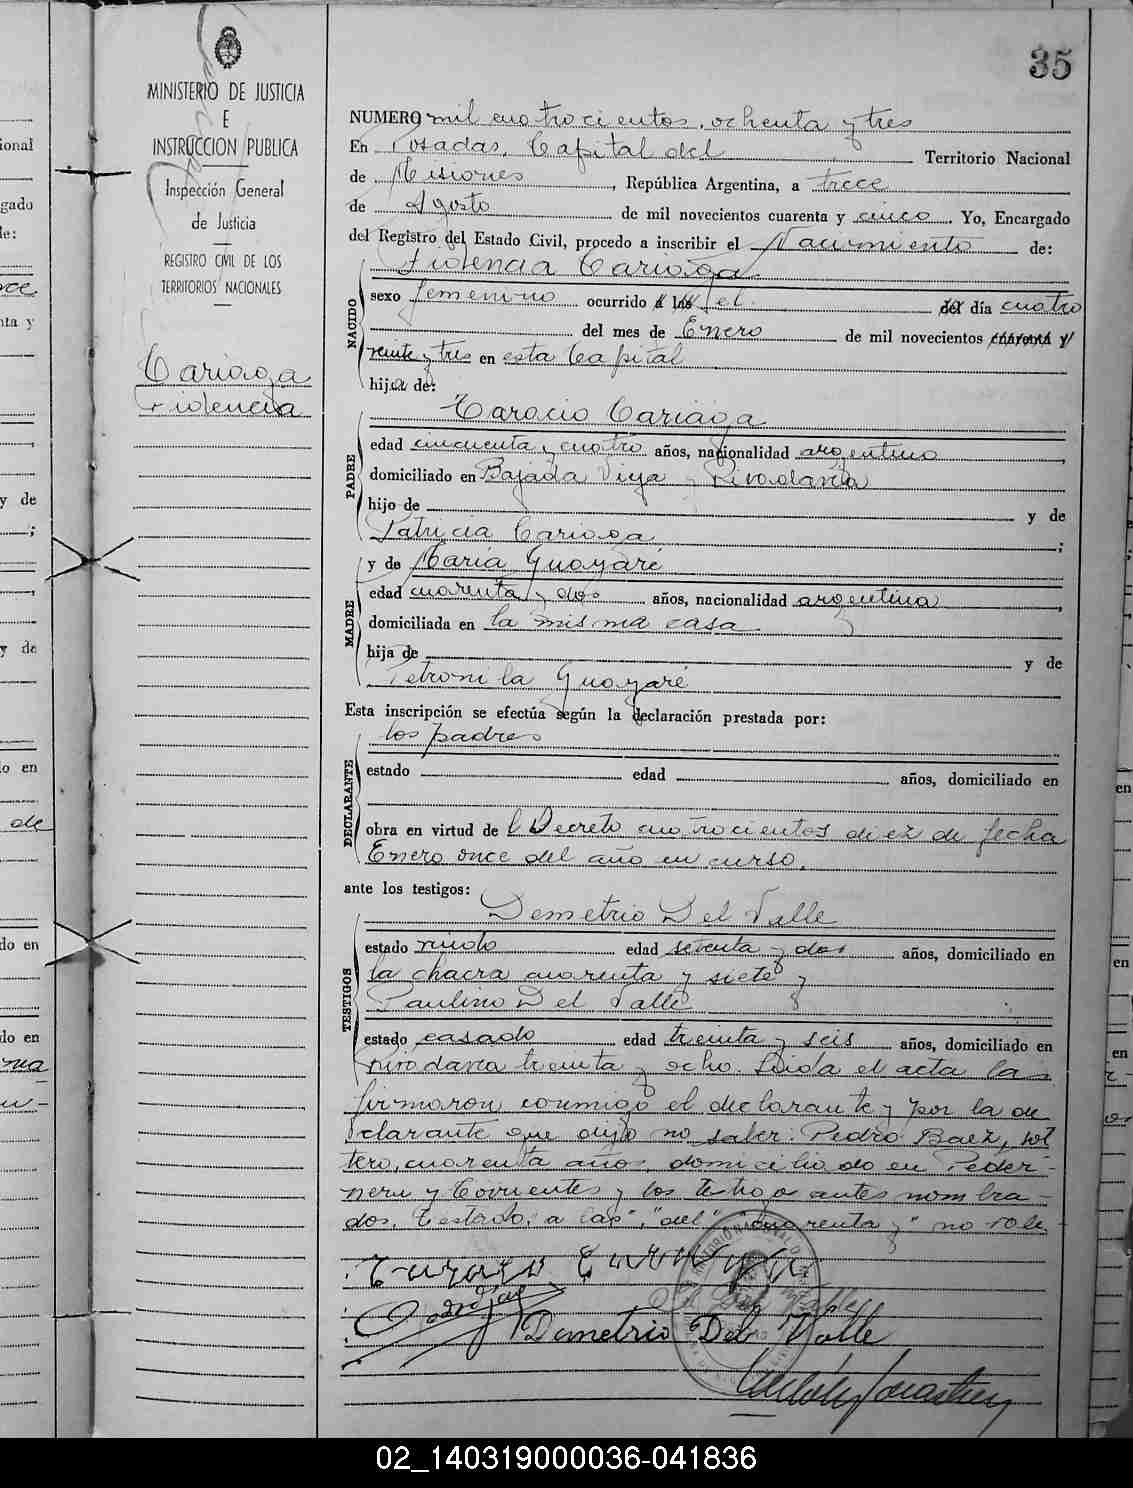 35
MINISTERIO DE JUSTICIA
E
INSTRUCCION PUBLICA
Inspección General
de Justicia
REGISTRO CIVIL DE LOS
TERRITORIOS NACIONALES
Cariaga
NUMERO mil cuatrocientos, ochenta y tres
En Posadas, Capital del Territorio Nacional
de Misiones, República Argentina, a trece
de Agosto de mil novecientos cuarenta y cinco. Yo, Encargado
del Registro del Estado Civil, procedo a inscribir el Nacimiento de:
Cariaga
NACIDO
sexo femenino ocurrido á las el del día cuatro
del mes de Enero de mil novecientos cuarenta y
veinte y tres en esta Capital
hija de:
PADRE
Cariaga
edad cincuenta y cuatro años, nacionalidad argentino
domiciliado en Bajada Vieja y Rivadavia
hijo de y de
Cariaga;
MADRE
y de Maria Guayaré
edad cuarenta y dos años, nacionalidad argentina
domiciliada en la misma casa
hija de y de
Petronila Guayaré
Esta inscripción se efectúa según la declaración prestada por:
los padres
DECLARANTE
estado edad años, domiciliado en
obra en virtud del Decreto cuatrocientos diez de fecha
Enero once del año en curso,
ante los testigos:
TESTIGOS
Demetrio Del Valle
estado viudo edad setenta y dos años, domiciliado en
la chacra cuarenta y siete y
Paulino Del Valle
estado casado edad treinta y seis años, domiciliado en
rivadavia treinta y ocho. Leida el acta la
firmaron conmigo el declarante y por la de
clarante que dijo no saber: Pedro Baez, sol
tero, cuarenta años, domiciliado en Peder-
nera y Corrientes y los testigos antes nombra-
dos. Testado: "a las", "del", "cuarenta y" no vale.
Demetrio Del Valle
02_140319000036-041836